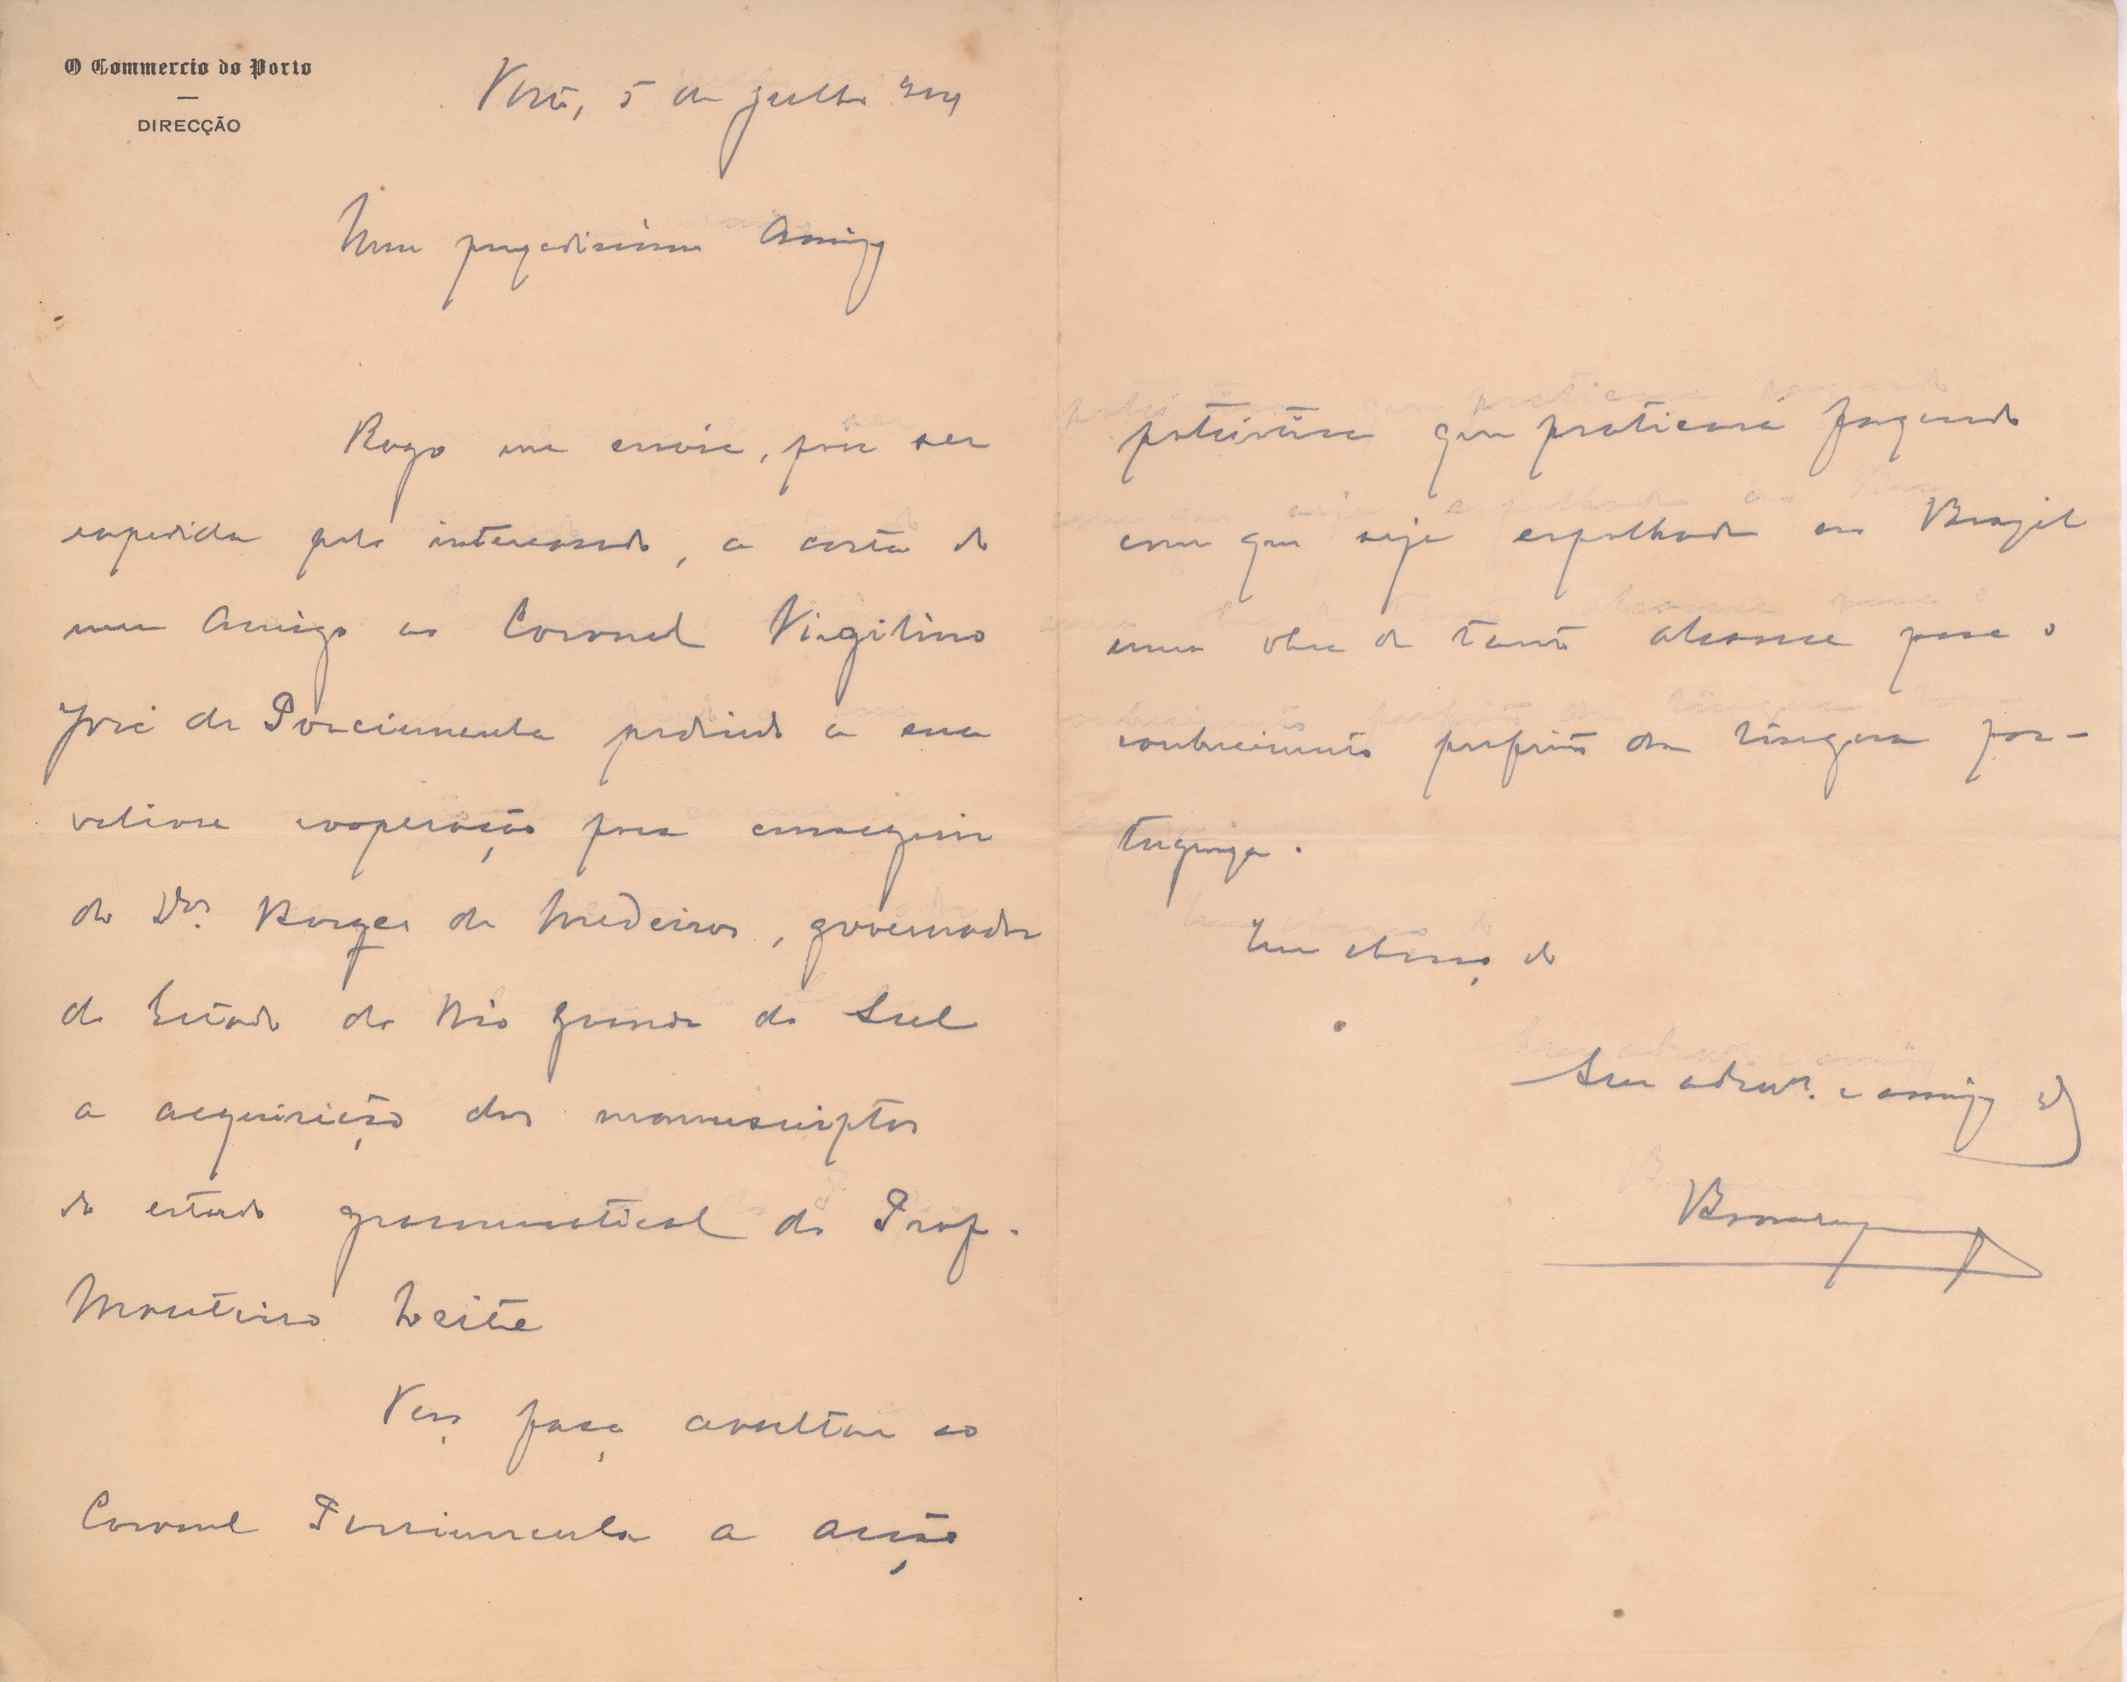 O Commercio do Porto
DIRECÇÃO
Porto, 5 de julho
Meu presadissimo Amigo
Rogo me envie, para ser
expedida pelo interessado, a carta do
meu Amigo ao Coronel Virgilino
José de Porciuncula pedindo a sua
valiosa cooperação para conseguir
do Dr. Borges de Medeiros, governador
do Estado do Rio Grande do Sul
a acquisição dos manuscriptos
do estudo grammatical do Prof.
Monteiro Leite
Peço faça avultar ao
Coronel Porciuncula a acção
patriotica que praticará fazendo
com que seja espalhada no Brazil
uma obra de tanto alcance para o
conhecimento perfeito da lingua por-
tugueza.
Um abraço do
Seu admor. e amigo